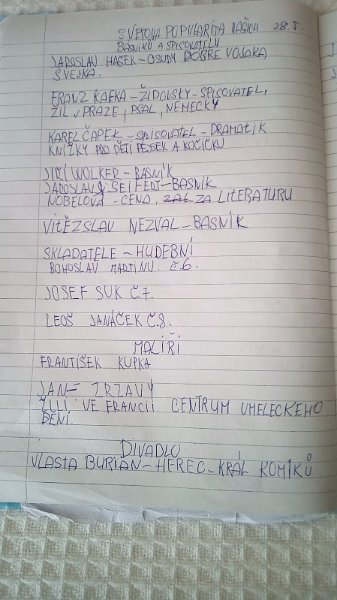 SVĚTOVÁ POPULARITA NAŠICH 28.5.
BÁSNÍKŮ A SPISOVATELŮ
JAROSLAV HAŠEK - OSUDY DOBRÉ VOJÁKA
ŠVEJKA.
FRANZ KAFKA - ŽIDOVSKÝ - SPISOVATEL,
ŽIL V PRAZE, PSAL, NĚMECKY
KAREL ČAPEK - SPISOVATEL - DRAMATIK
KNÍŽKY PRO DĚTI PEJSEK A KOČIČKU
JIŘÍ WOLKER - BÁSNÍK
JAROSLAV SEIFERT - BÁSNÍK
NOBELOVA - CENA, ZA LITERATURU
VÍTĚZSLAV NEZVAL - BÁSNÍK
SKLADATELÉ - HUDEBNÍ
BOHUSLAV MARTINU. Č.6.
JOSEF SUK Č.7.
LEOŠ JANÁČEK Č.8.
MALÍŘI
FRANTIŠEK KUPKA
JAN - ZRZAVÝ
ŽILI VE FRANCII CENTRUM UMELECKEHO
DĚNÍ.
DIVADLO
VLASTA BURIAN - HEREC - KRÁL KOMIKŮ